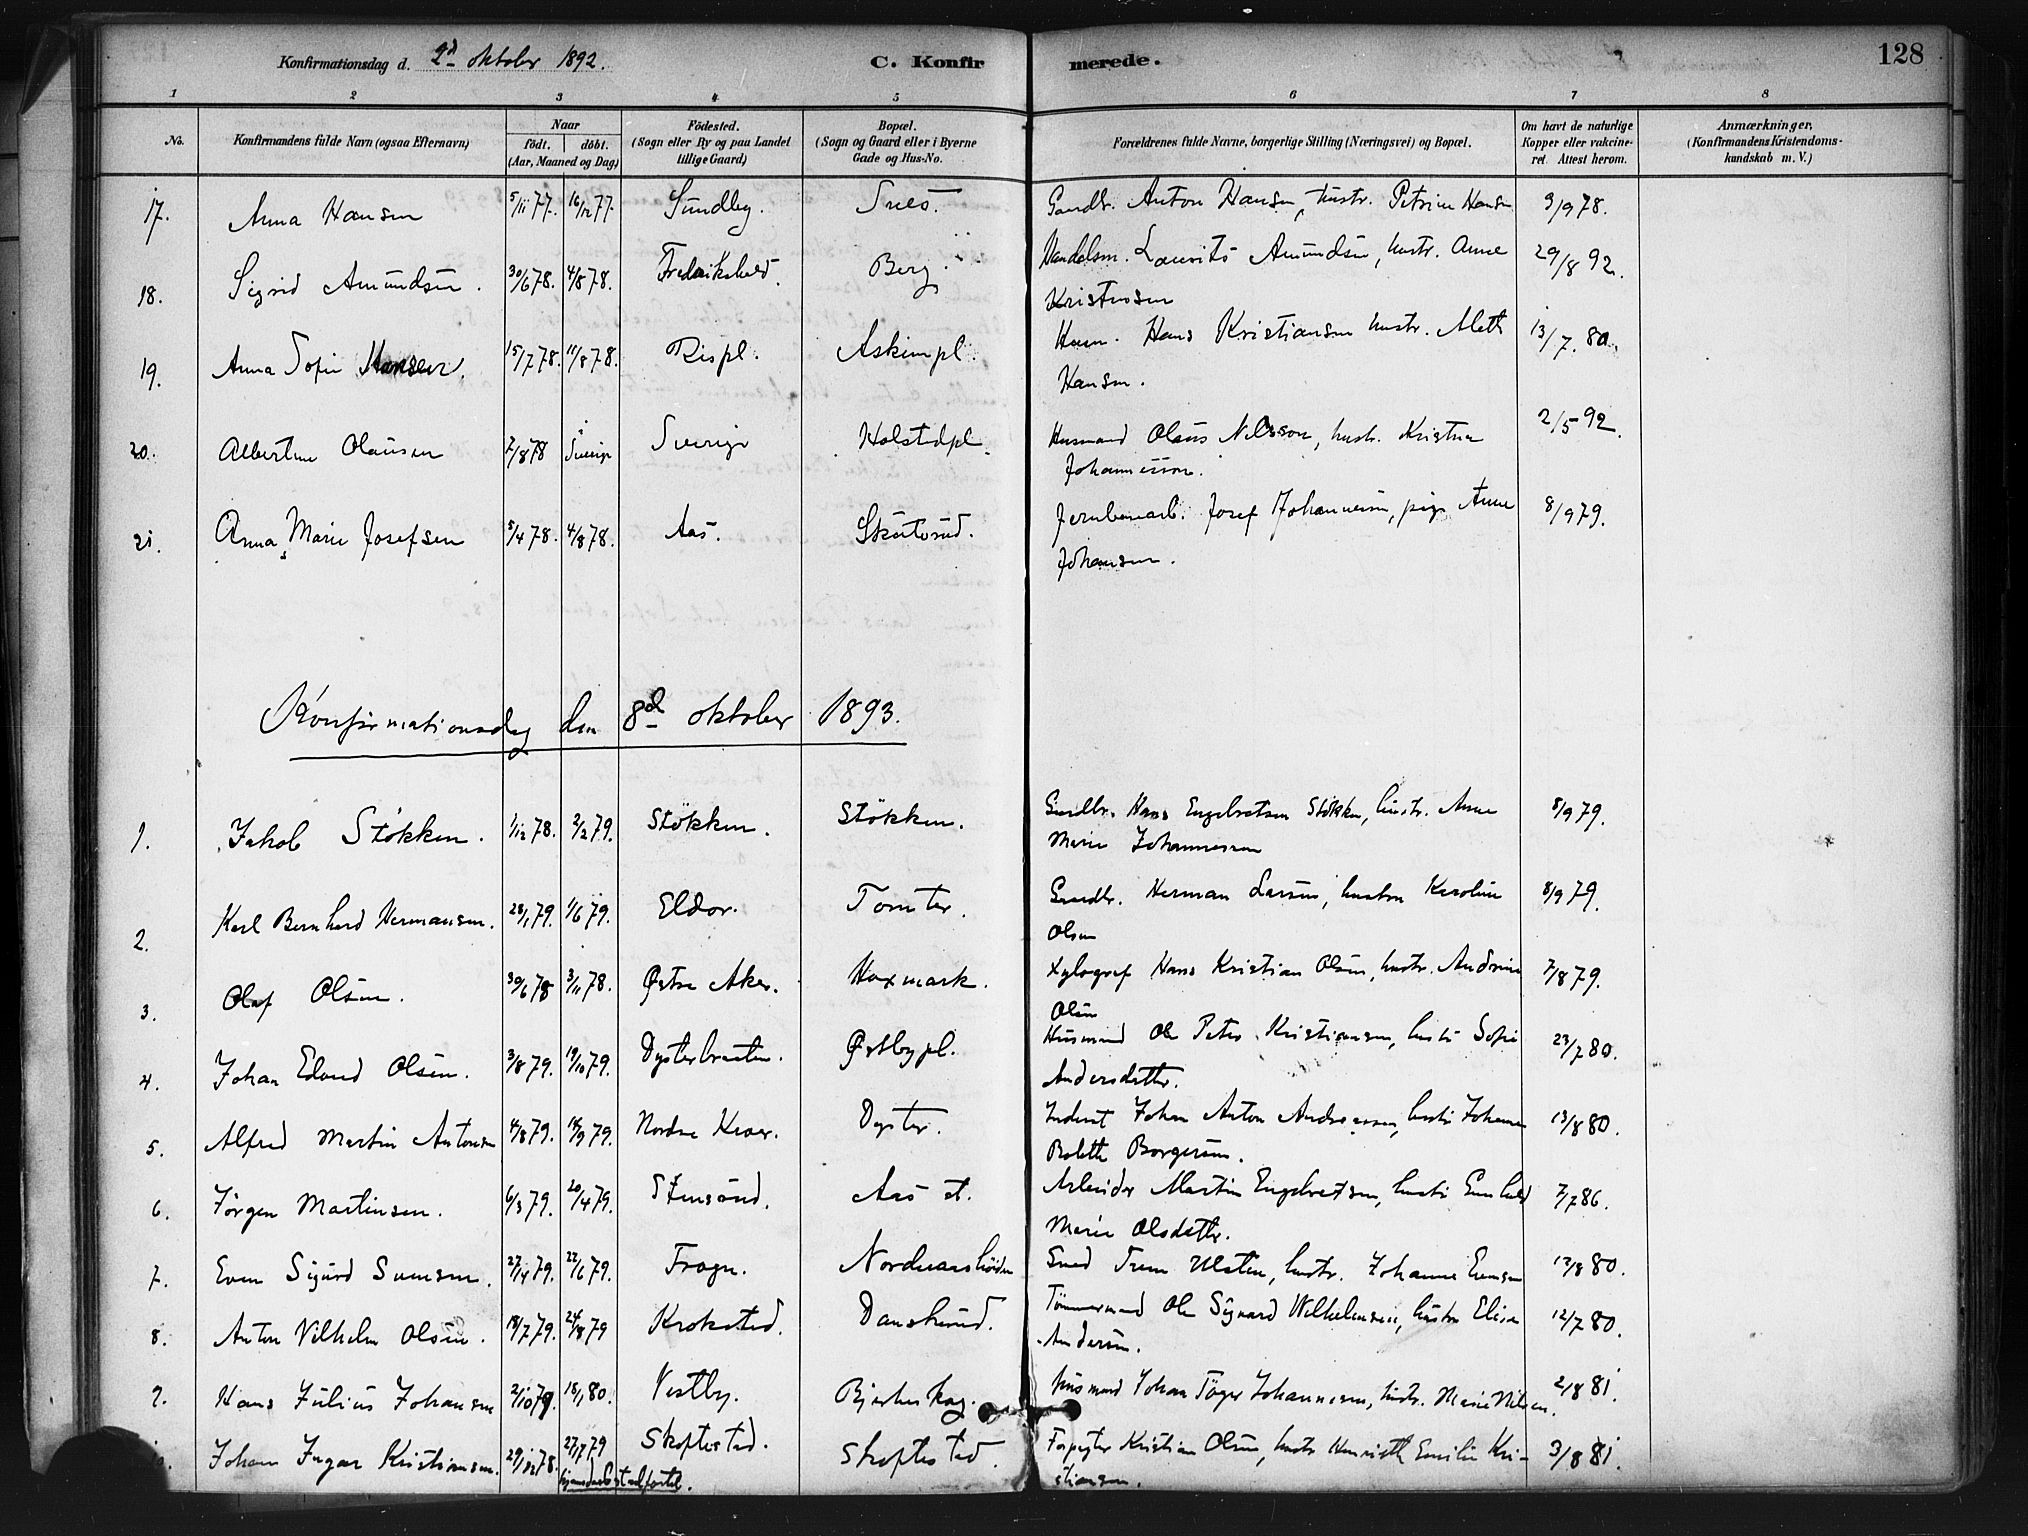 Konfirmationsdag d. 2d oktober 1892. C. Konfirmerede. 128
1 2 3 4 5 6 7 8
No. Konfirmandens fulde Navn (ogsaa Efternavn) Naar födt. döbt. (Aar, Maaned og Dag) Födested. (Sogn eller By og paa Landet tillige Gaard) Bopæl. (Sogn og Gaard eller i Byerne Gade og Hus-No. Forældrenes fulde Navne, borgerlige Stilling (Næringsvei) og Bopæl. Om havt de naturlige Kopper eller vakcineret. Attest herom. Anmærkninger, (Konfirmandens Kristendomskundskab m. V.)
17. Anna Hansen 5/11 77. 16/12 77. Sundby. Gaardbr. Anton Hansen, hustr. Petrine Hansen 3/9 78.
18. Sigrid Amundsen. 30/6 78. 4/8 78. Fredrikshald. Berg. Handelsm. Laurits Amundsen, hustr. Anne 29/8 92.
Kristensen
19. Anna Sofie Hansen. 15/7 78. 11/8 78. Rispl. Askimpl. Husm. Hans Kristiansen hustr. Mathe 13/7. 80.
Hansen.
20. Albertine Olausen 7/8 78 Sverige Sverige Holstadpl. Husmand Olaus Nilsson, hustr. Kristine 2/5 92.
Johannesson.
21. Anna Marie Josefsen 5/4 78. 4/8 78. Aas. Skuterud. Jernbanearb. Josef Johannesen, pige Anne 8/9 79.
Johansen.
Konfirmationsdag den 8d oktober 1893.
1. Jakob Støkken. 1/12 78. 2/2 79. Støkken. Støkken. Gaardbr. Hans Engebretsen Støkken, hustr. Anne 8/9 79.
Marie Johannessen
2. Karl Bernhard Hermansen. 28/1 79. 1/6 79. Eldor. Tomter. Gaardbr. Herman Larsen, hustru Karoline 8/9 79.
Olsen
3. Olaf Olsen. 30/6 78 3/11 78. Østre Aker. Haxmark. Xylograf Hans Kristian Olsen, hustr. Andrine 7/8 79.
Olsen
4. Johan Edvard Olsen. 3/8 79. 19/10 79. Dysterbraaten. Østbypl. Husmand Ole Peter Kristiansen, hustr Sofie 23/7 80.
Andersdatter.
5. Alfred Martin Antonsen 4/8 79. 14/9 79. Nordre Kroer. Dyster. Inderst Johan Anton Andreassen, hustr Johanne 13/8 80.
Bolette Borgersen.
6. Jørgen Martinsen. 6/3 79. 20/4 79. Stensrud. Aas st. Arbeider Martin Engebretsen, hustr Gunhild 7/7 86.
Marie Olsdatter.
7. Even Sigurd Svensen. 27/4 79. 22/6 79. Frogn. Smed Sven Ulsten, hustr. Johanne Evensen 12/8 80.
8. Anton Vilhelm Olsen. 18/7 79. 24/8 79 Krokstad. Danskerud. Tømmermand Ole Sigvard Wilhelmsen, hustru Elise 12/7 80.
Andersen.
9. Hans Julius Johansen 2/10 79 18/1 80. Vestby. Bjerkeskog. husmand Johan Tøger Johannesen, hustr. Marie Nilsen. 2/8 81.
Johan Ingar Kristiansen. 29/12 78. 27/7 79 Skoftestad. Skoftestad. Forpagter Kristian Olsen, hustr Henriette Emilie Kri- 3/8 81.
hjemdøbt stadfæstet. stiansen.